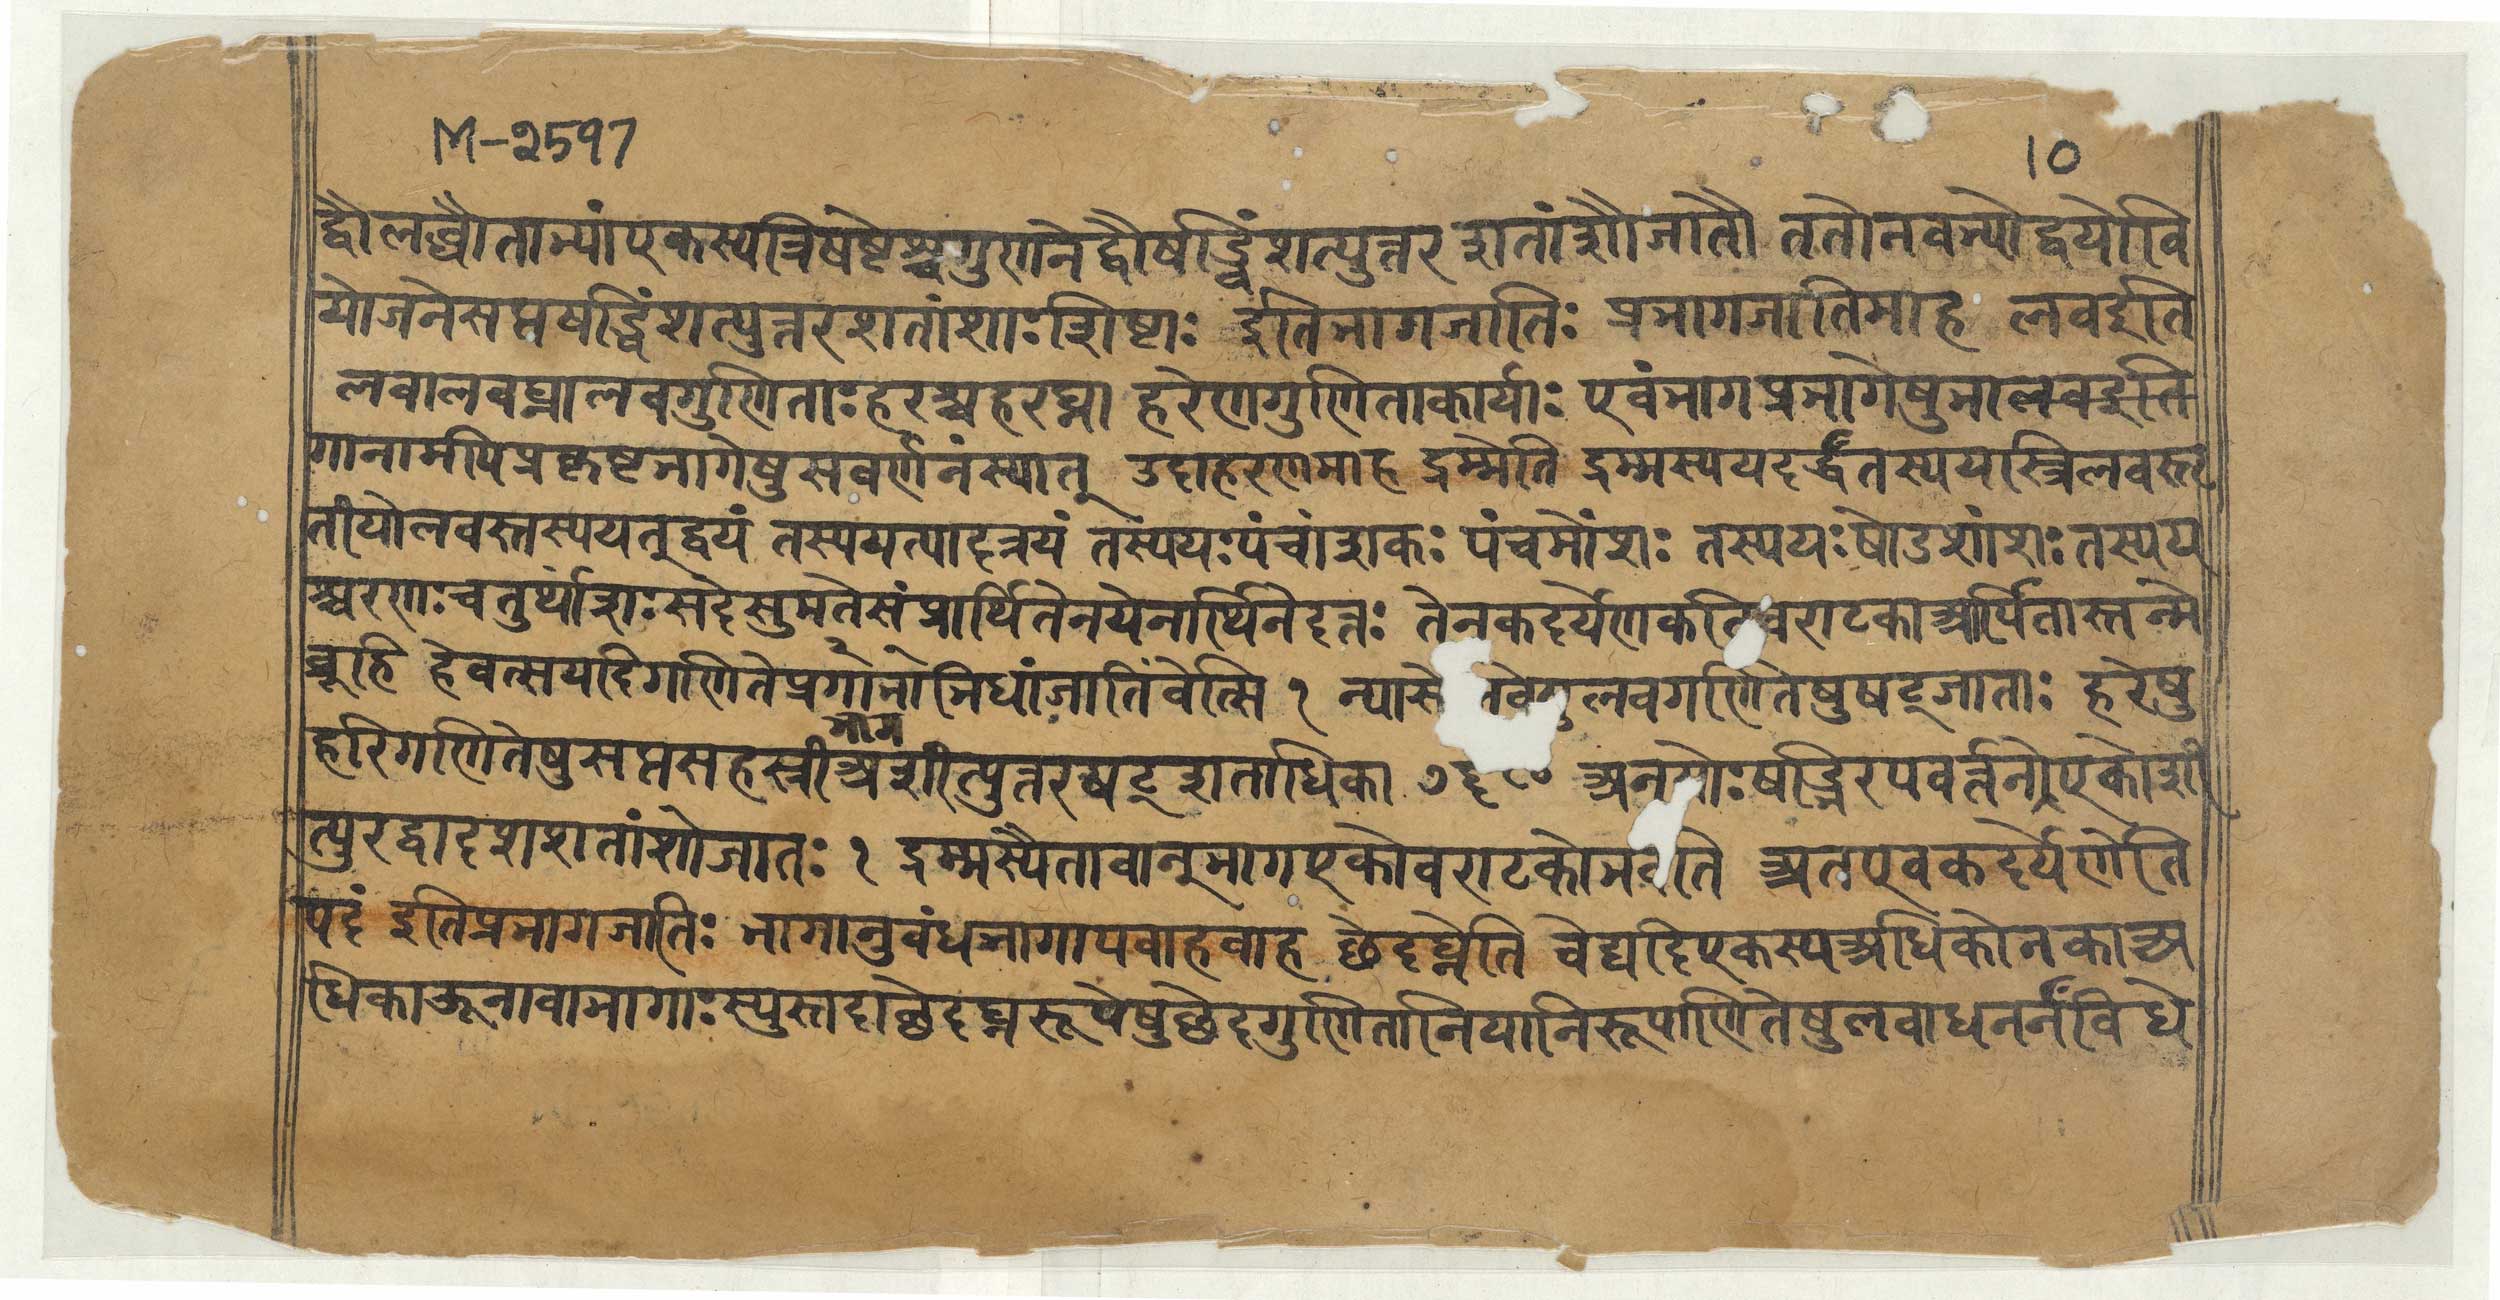 M-2597
10
द्वौलब्धौताभ्यांएकस्यत्रिषष्टेश्चगुणनेद्वौर्षड्विंशत्युत्तरशतांशौजातौ ततोनवभ्योद्वयोर्वि
योजनेसप्तषड्विंशत्युत्तरशतांशाःशिष्टाः इतिभागजातिः प्रभागजातिमाह लवइति
लवालवघ्नालवगुणिताःहरश्चहरघ्ना हरेणगुणिताकार्याः एवंभागप्रभागेषुभालवइति
गानामपिप्रकृष्टभागेषुसवर्णनंस्यात् उदाहरणमाह द्रम्मेति द्रम्मस्ययदर्द्धंतस्ययस्त्रिलवस्तृ
तीयोलवस्तस्ययत्द्वयं तस्ययत्पादत्रयं तस्ययःपंचांशकः पंचमोंशः तस्ययःषोडशांशः तस्यय
श्चरणःचतुर्थांशःसदेसुमतेसंप्रार्थितेनयेनार्थिनेदत्तः तेनकदर्येणकतिवराटकाअर्पितास्तन्मे
ब्रूहि हेवत्सयदिगणितेप्रगाभाभिधांजातिंवेत्सि १ न्यासे लवगणितेषुषट्जाताः हरेषु
भाग
हरिगणितेषुसप्तसहस्त्रीअशीत्युत्तरषट्शताधिका ७६८० अनयोःषड्भिरपवर्त्तनेएकोशी
त्युरद्वादशशतांशोजातः १ द्रम्मस्यैतावान्भागएकोवराटकोभवति अतएवकदर्येणेति
पदं इतिप्रभागजातिः भागानुबंधभागापवाहवाह छेदघ्नेति चेद्यदिएकस्यअधिकोनकाअ
धिकाऊनावाभागाःस्युस्तदाछेदघ्नरूपेषुछेदगुणितानियानिरूपाणितेषुलवाधनर्नंविधे